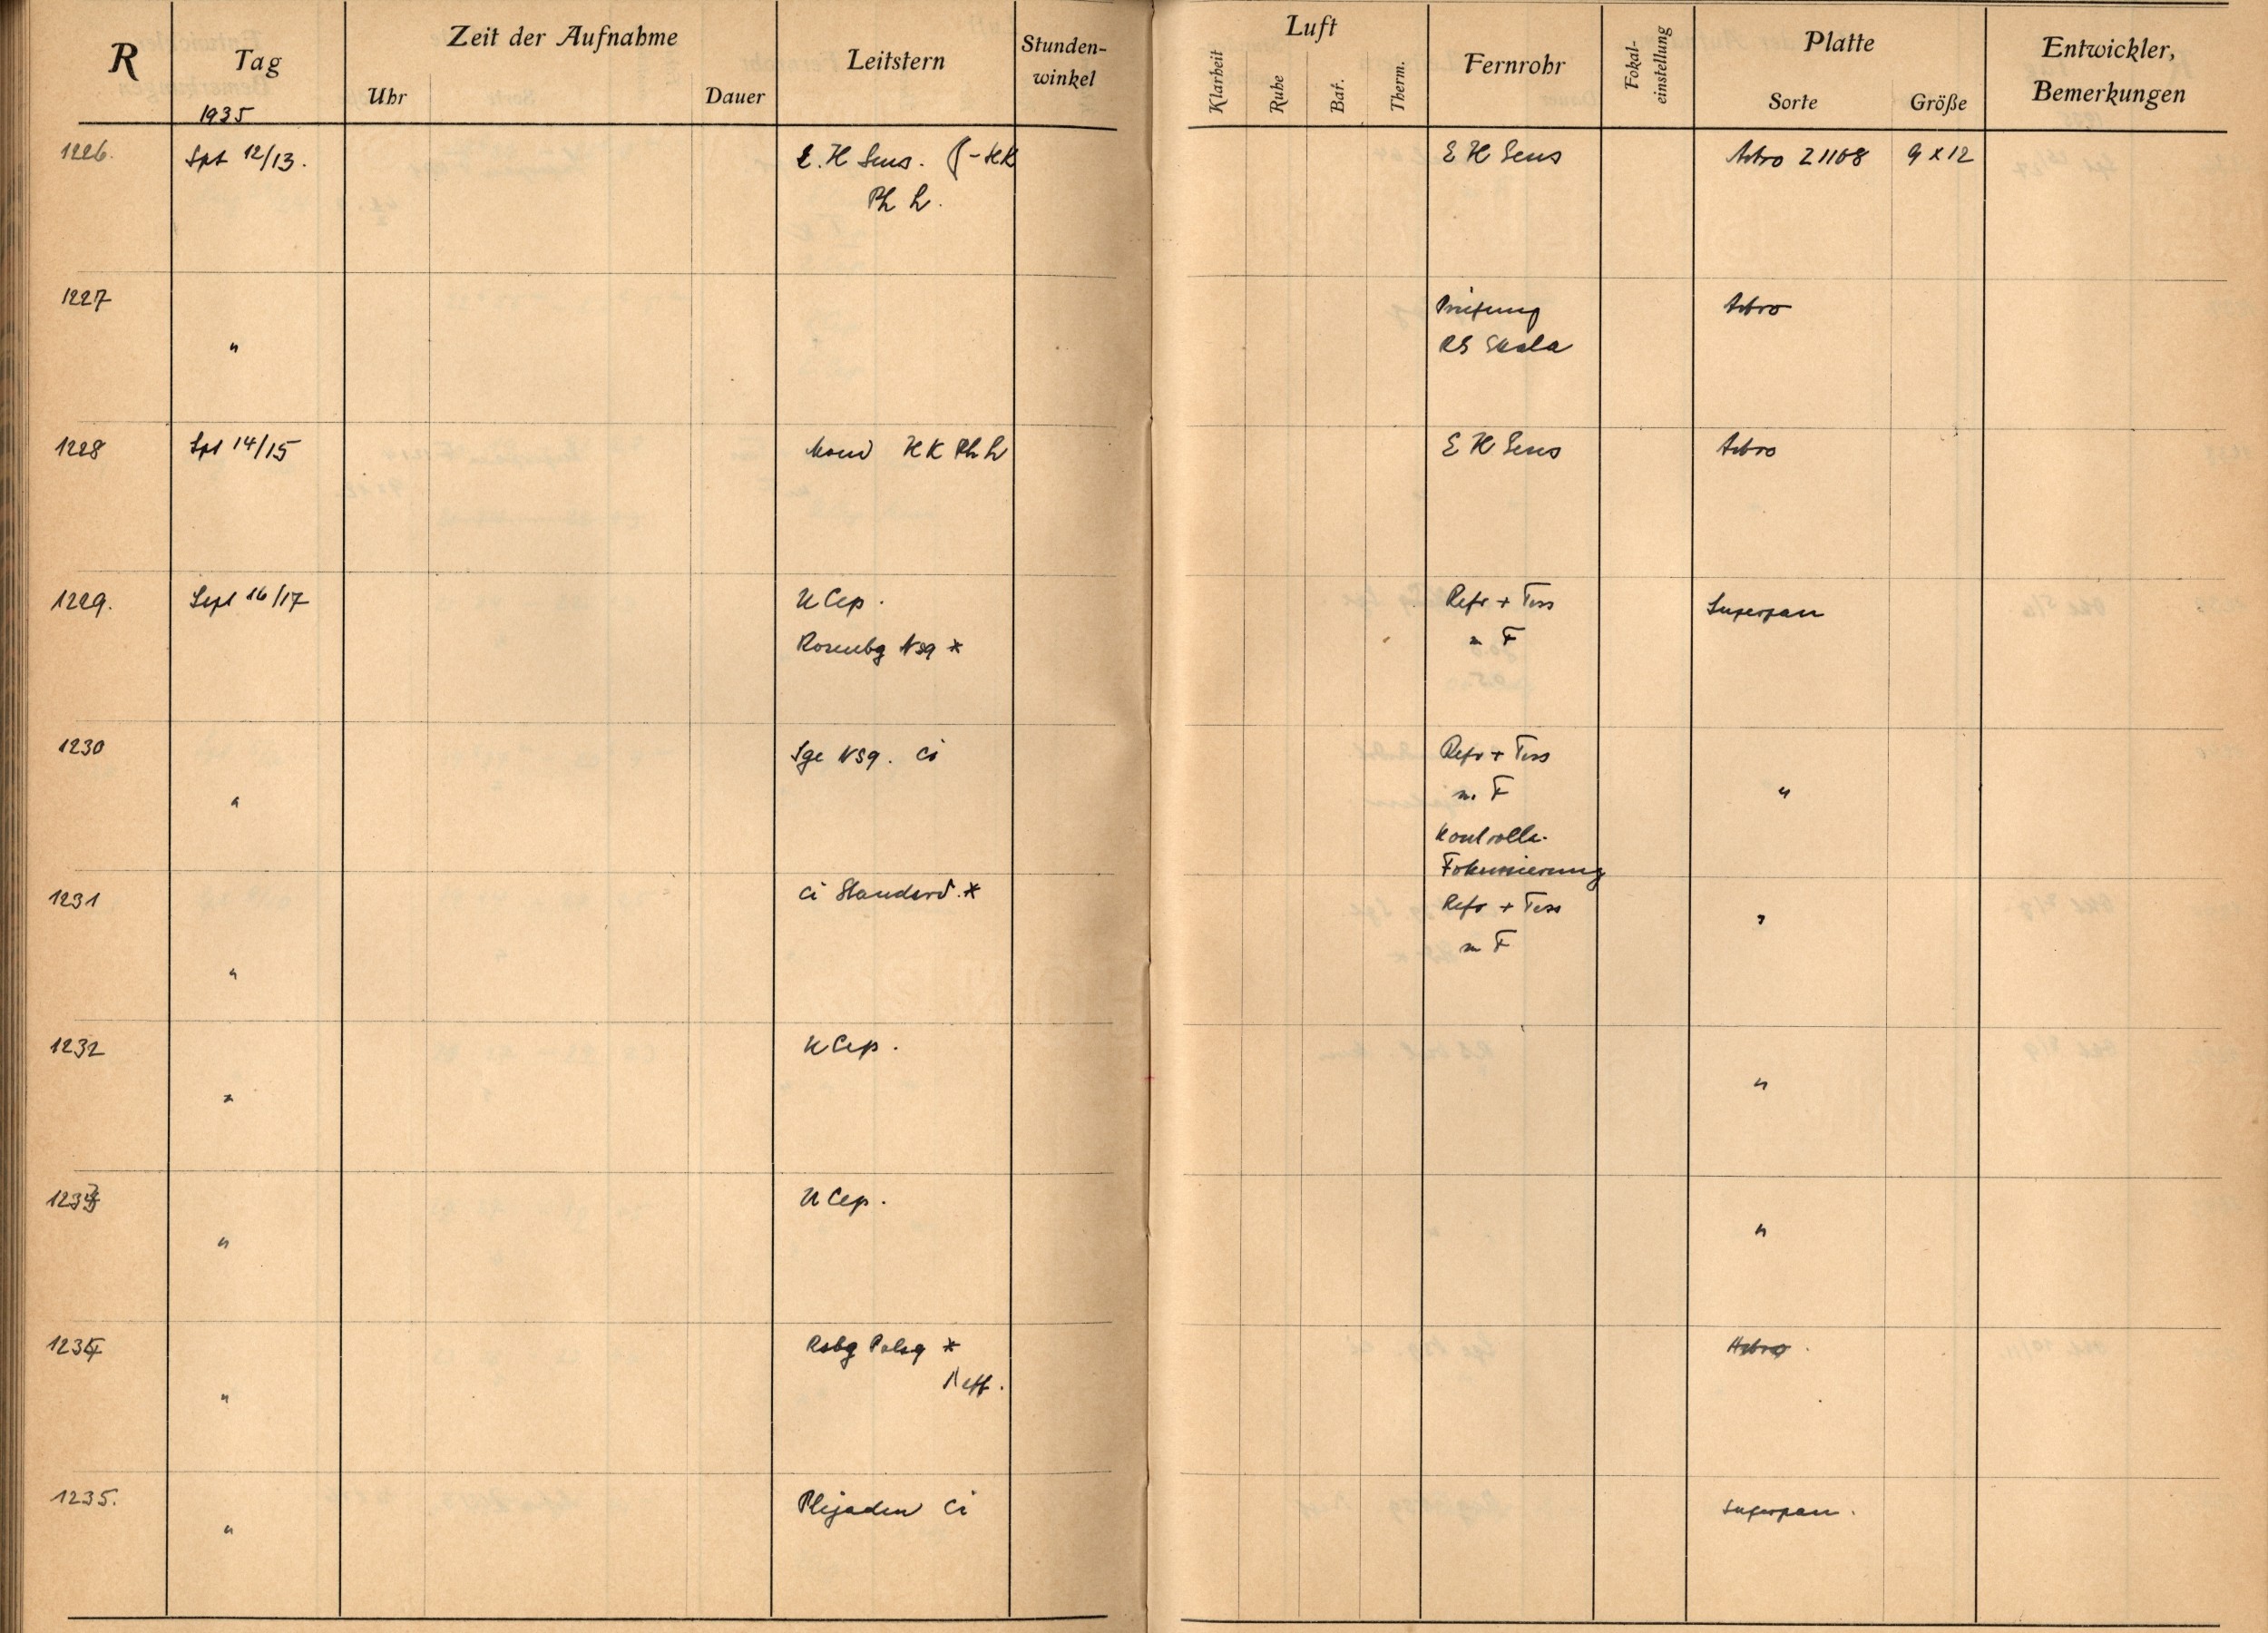 R Tag Zeit der Aufnahme Leitstern Stunden-winkel Luft Fernrohr Fokal-einstellung Platte Entwickler, Bemerkungen
1935 Uhr Dauer Klarheit Ruhe Bar. Therm. Sorte Größe
1226. Spt 12/13. E. H Sens. - HK E H Sens Astro Z 1168 9 x 12
Ph L.
1227 Prüfung Astro
" RS Skala
1228 Spt 14/15 Mond HK Ph L E H Sens Astro
1229. Sept 16/17 U Cep. Refr + Tess Superpan
Rosenbg NSq * m F
1230 Sge NSq. Ci Refr + Tess
" m. F "
Kontrolle.
Fokussierung
1231 Ci Standard. * Refr + Tess "
" m F
1232 U Cep.
" "
1233 U Cep.
" "
1234 Rsbg Polsq * Astro.
" λ eff.
1235. Plejaden Ci Superpan.
"